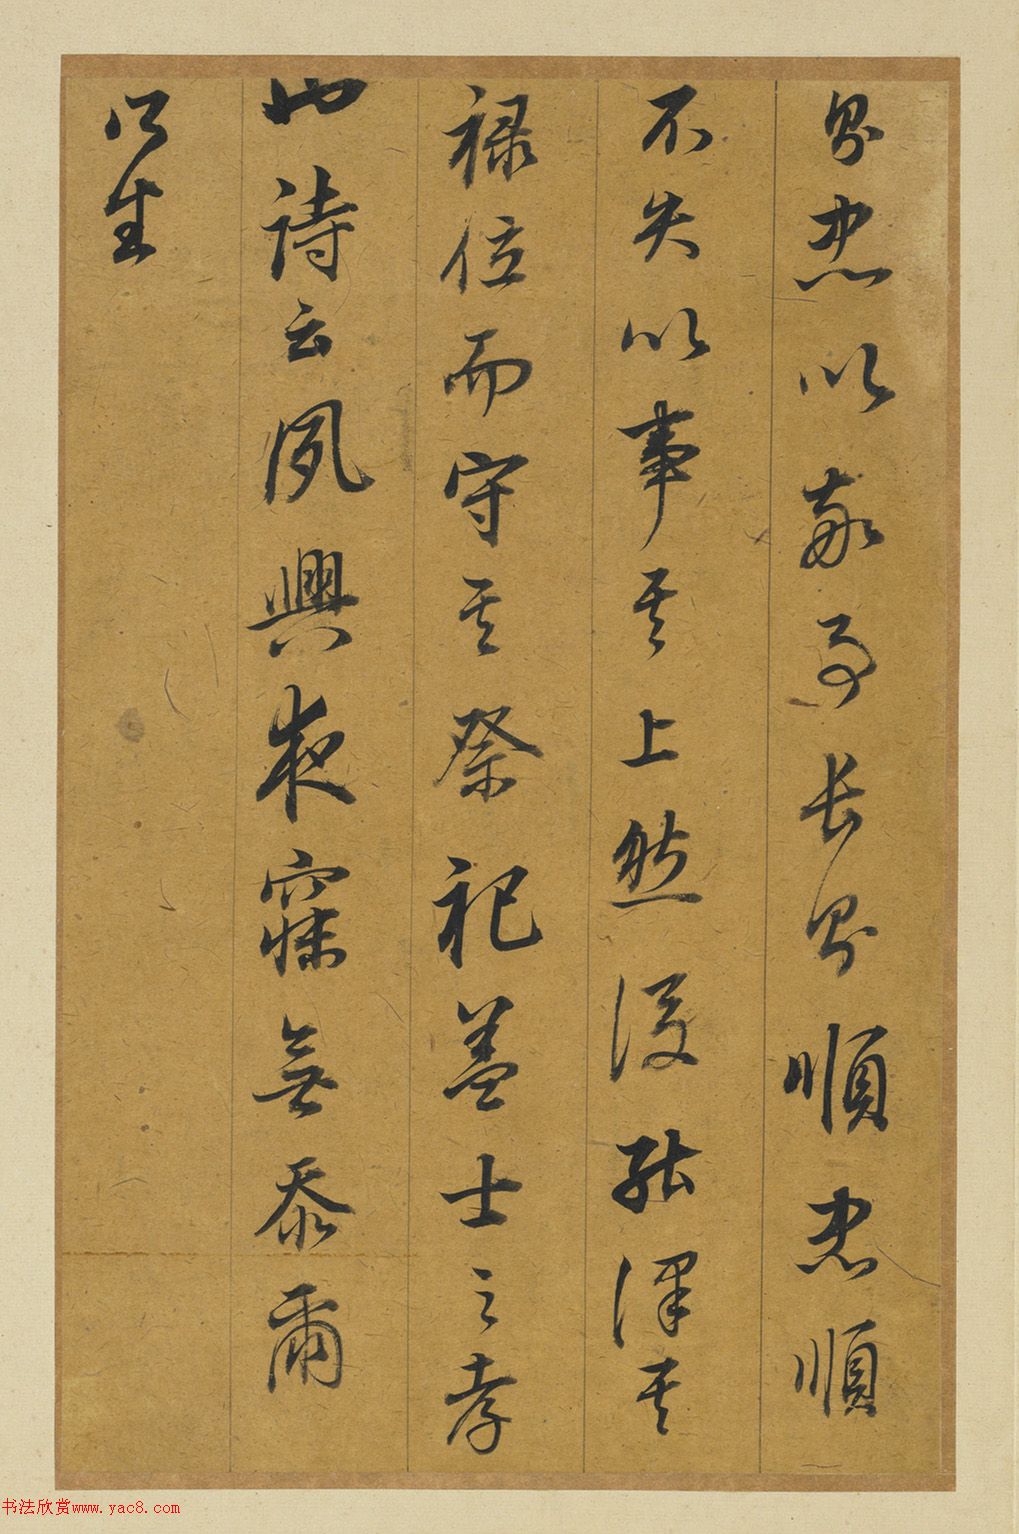 則忠以敬事長則順忠順
不失以事其上然後能保其
禄位而守其祭祀盖士之孝
也詩云夙興夜寐無忝爾
所生
书法欣赏www.yac8.com